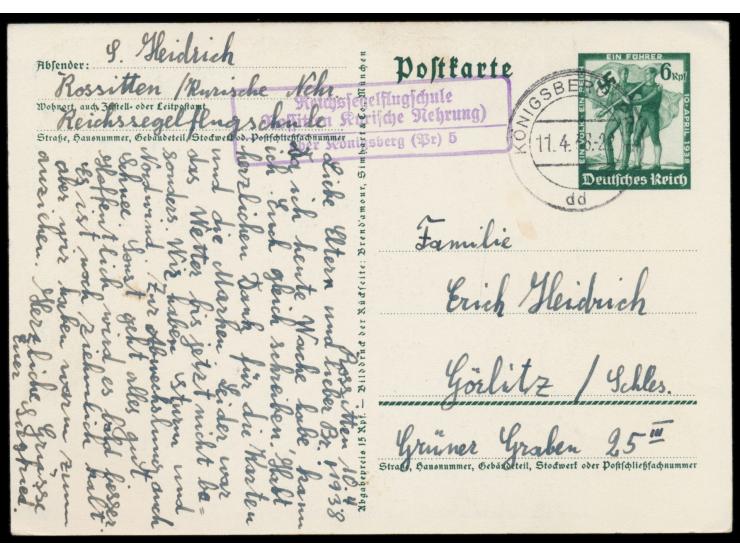 Absender: S. Heidrich
Rossitten /Kurische Nehr.
Wohnort, auch Zustell- oder Leitpostamt
Reichssegelflugschule
Straße, Hausnummer, Gebäudeteil, Stockwerk od. Postschließfachnummer
Reichssegelflugschule
Rossitten Kurische Nehrung)
über Königsberg (Pr) 5
Postkarte
EIN FÜHRER
EIN VOLK EIN REICH
10. APRIL 1938
6 Rpf
Deutsches Reich
KÖNIGSBERG
11.4.
dd
Familie
Erich Heidrich
Görlitz / Schles.
Grüner Graben 25 III
Straße, Hausnummer, Gebäudeteil, Stockwerk oder Postschließfachnummer
Abgabepreis 15 Rpf. — Bilddruck der Rückseite: Brend'amour, Simhart & Co., München
Rossitten 10.4.
1938
Liebe Eltern und lieber Br.!
Da ich heute Wache habe kann
ich Euch gleich schreiben. Habt
herzlichen Dank für die Karten
und die Marken. Leider war
das Wetter bis jetzt nicht be-
sonders. Wir haben Sturm und
Nordwind. Zur Abwechslung auch
Schnee. Sonst geht alles gut.
Hoffentlich wird es bald besser.
Es ist noch ziehmlich kalt.
aber wir haben warm zum
anziehen. Herzliche Grüsse
Euer